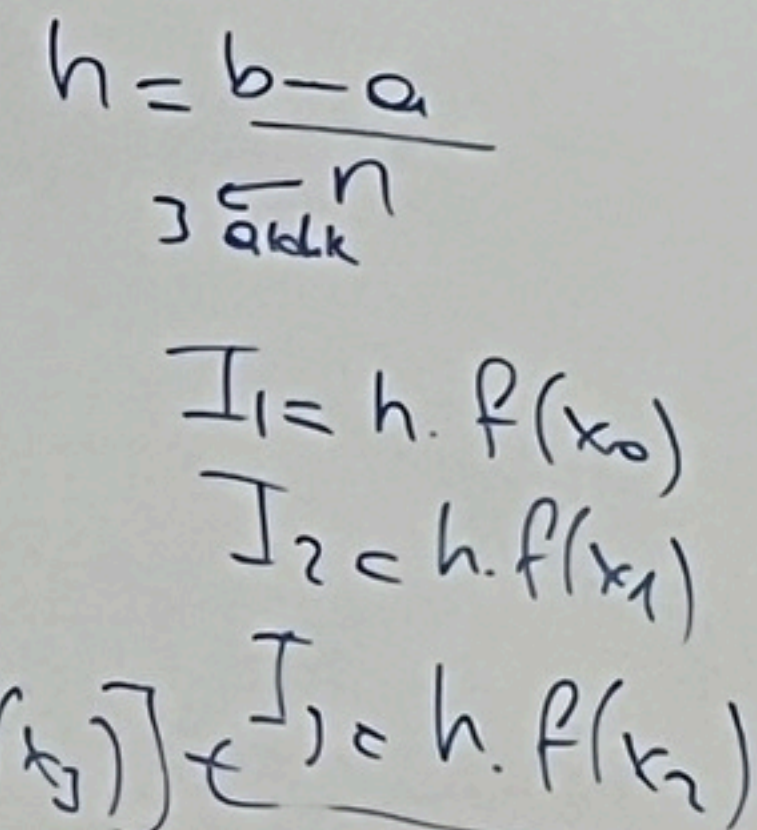 h = b - a
n
3 ← aralık
I₁ = h. f(x₀)
I₂ = h. f(x₁)
I₃ = h. f(x₂)
(x₃)]